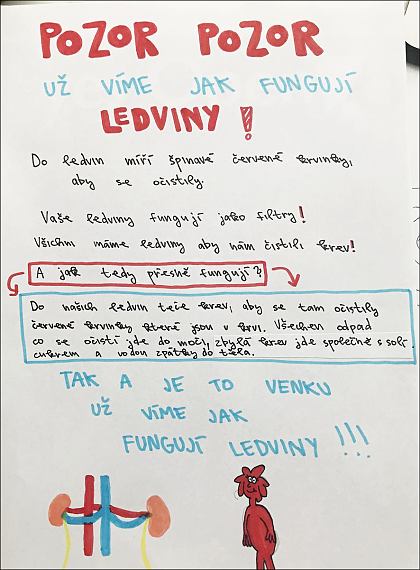 POZOR POZOR
UŽ VÍME JAK FUNGUJÍ
LEDVINY!
Do ledvin míří špinavé červené krvinky,
aby se očistily.
Vaše ledviny fungují jako filtry!
Všichni máme ledviny aby nám čistili krev!
A jak tedy přesně fungují?
Do našich ledvin teče krev, aby se tam očistily
červené krvinky které jsou v krvi. Všechen odpad
co se očistí jde do moči, zbylá krev jde společně s solí
cukrem a vodou zpátky do těla.
TAK A JE TO VENKU
UŽ VÍME JAK
FUNGUJÍ LEDVINY!!!